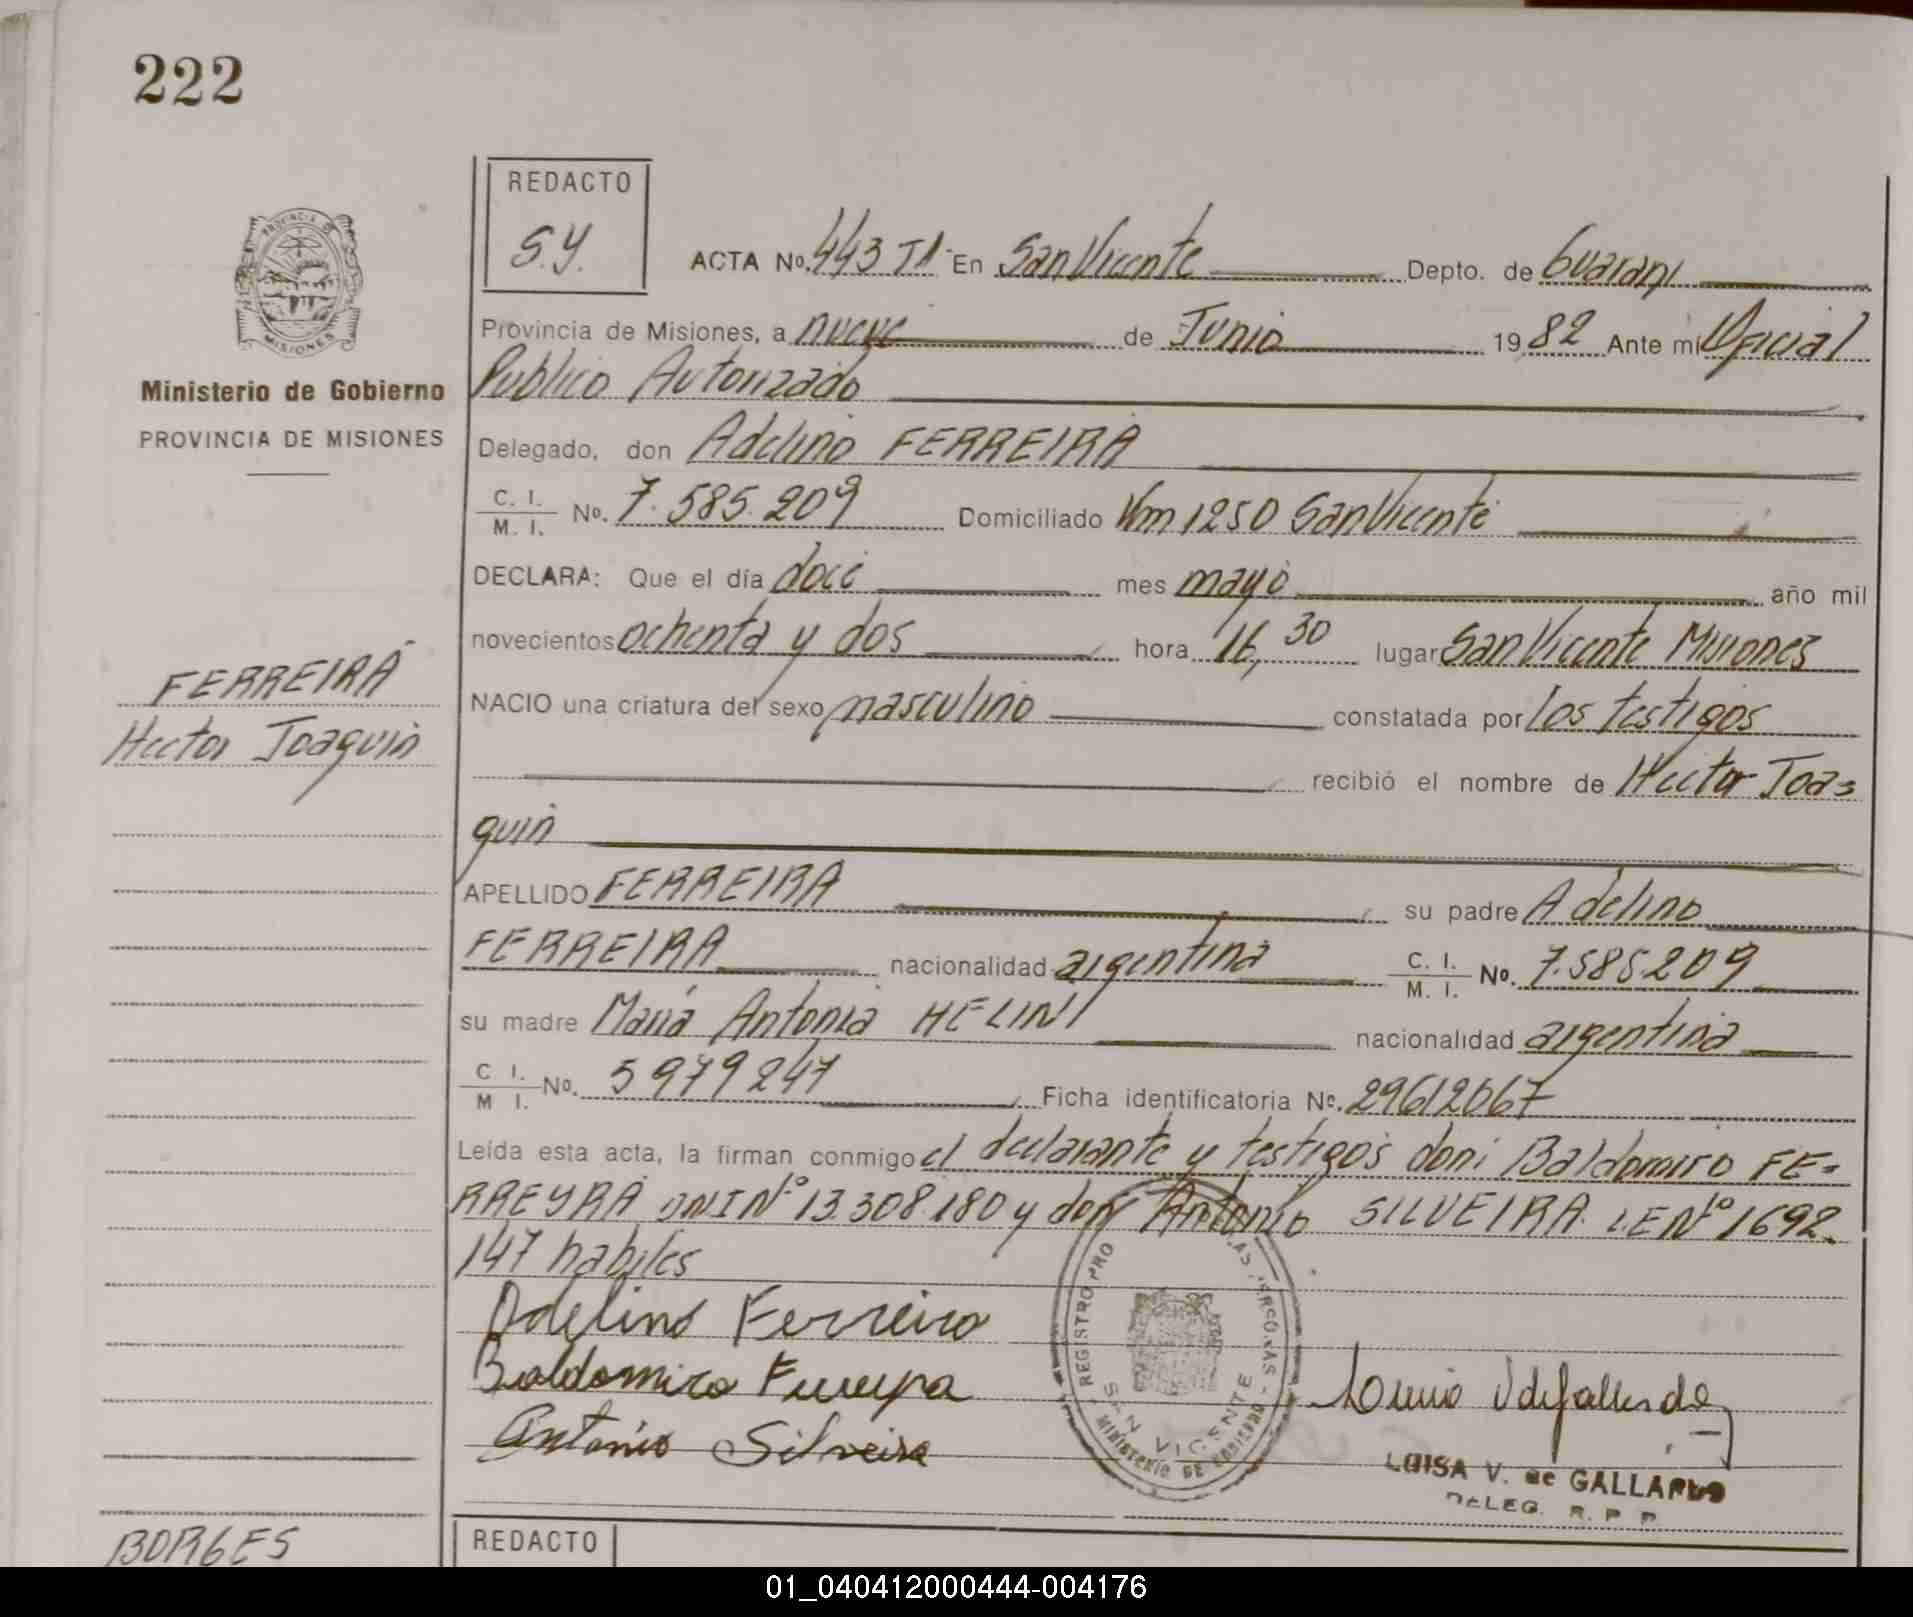 222
REDACTO
S.Y.
ACTA No. 443 T1 En San Vicente Depto. de Guarani
PROVINCIA DE
MISIONES
Provincia de Misiones, a nueve de Junio 1982 Ante mi Oficial
Publico Autorizado
Ministerio de Gobierno
PROVINCIA DE MISIONES
Delegado, don Adelino FERREIRA
C. I.
M. I. No. 7.585.209 Domiciliado Km 1250 San Vicente
DECLARA: Que el día doce mes mayo año mil
novecientos ochenta y dos hora 16,30 lugar San Vicente Misiones
FERREIRA
Hector Joaquin
NACIO una criatura del sexo masculino constatada por los testigos
recibió el nombre de Hector Joa=
quin
APELLIDO FERREIRA su padre Adelino
FERREIRA nacionalidad argentina C. I. M. I. No. 7.585.209
su madre María Antonia HELINI nacionalidad argentina
C I.
M I. No. 5979247 Ficha identificatoria No. 29612067
Leída esta acta, la firman conmigo el declarante y testigos don: Baldomiro FE=
RREYRA DNI Nº 13.308.180 y don Antonio SILVEIRA. LE Nº 1692.
147 habiles
Adelino Ferreira
Baldomiro Ferreyra
Antonio Silveira
REGISTRO PRO
SAN VICENTE
MINISTERIO DE GOBIERNO
LUISA V. de GALLARDO
DELEG. R. P. P.
BORGES
REDACTO
01_040412000444-004176